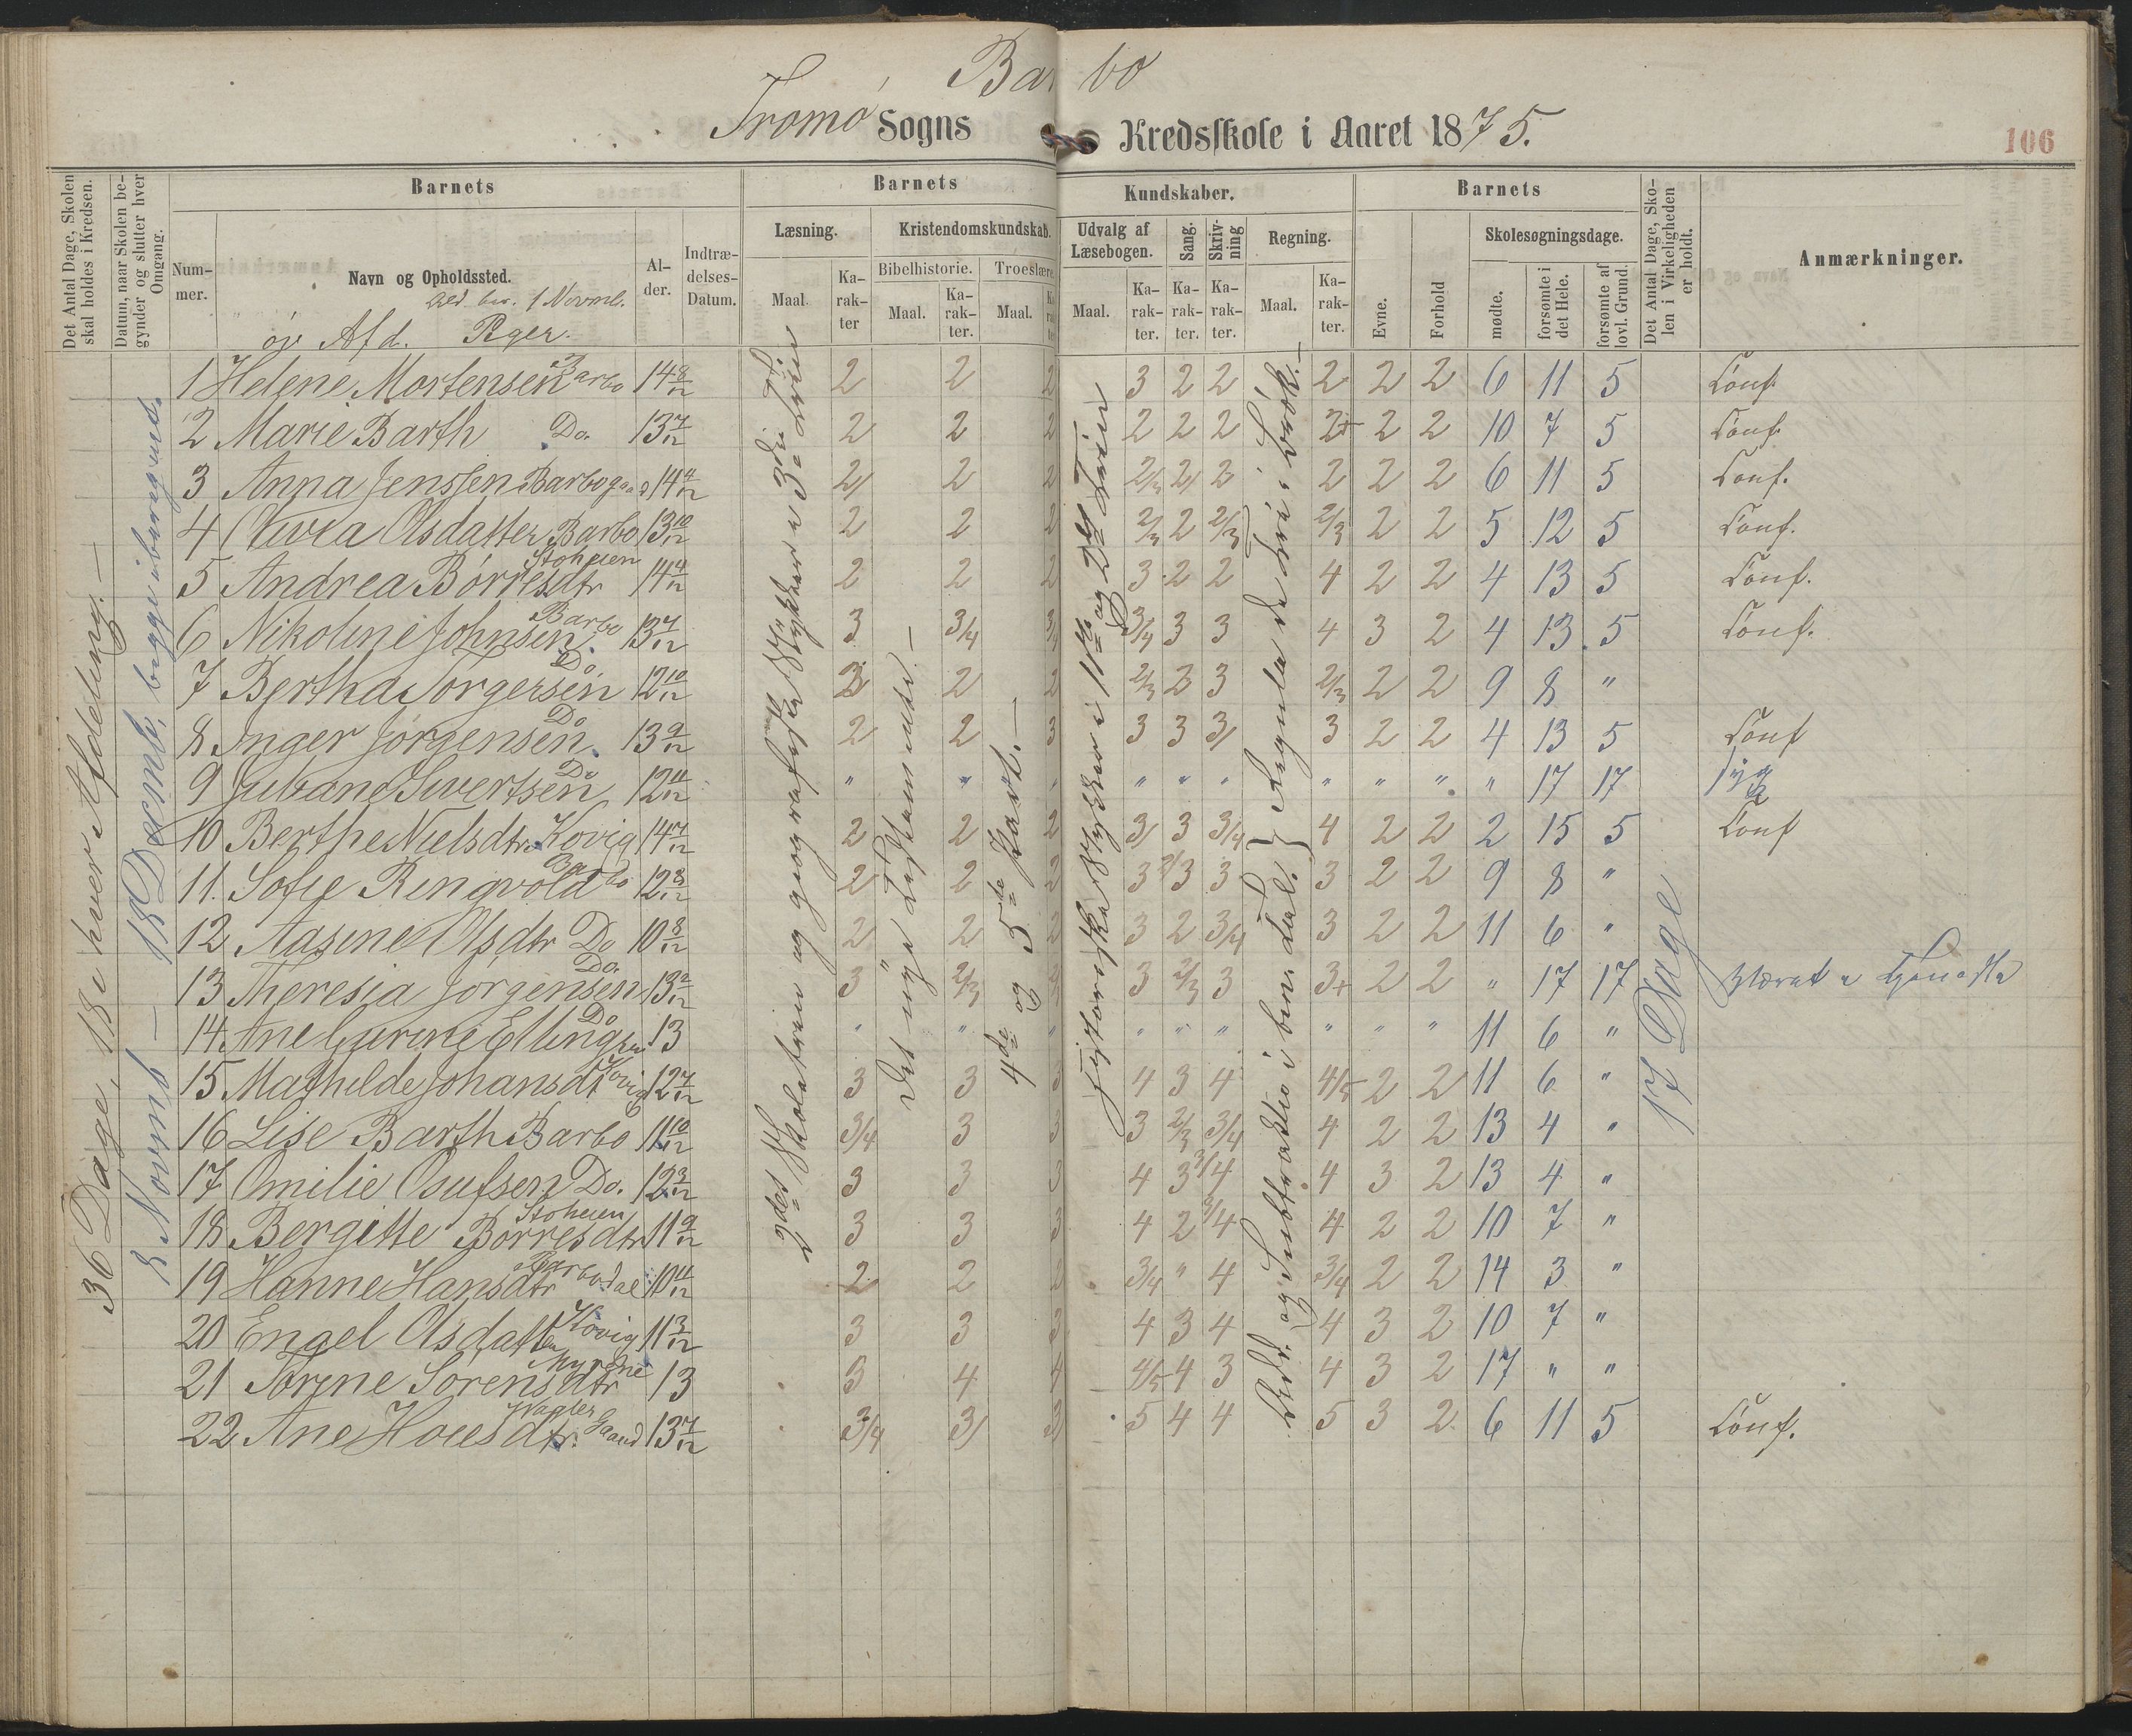 Barbo
Tromø Sogns Kredsskole i Aaret 1875.
106
Det Antal Dage, Skolen skal holdes i Kredsen.
Datum, naar Skolen begynder og slutter hver Omgang.
Barnets
Nummer.
Navn og Opholdssted.
Alder.
Indtrædelses-Datum.
Barnets Kundskaber.
Læsning.
Maal.
Karakter
Kristendomskundskab.
Bibelhistorie.
Maal.
Karakter.
Troeslære
Maal.
Udvalg af Læsebogen.
Maal.
Karakter.
Sang.
Karakter.
Skrivning
Karakter.
Regning.
Maal.
Karakter.
Barnets
Evne.
Forhold
Skolesøgningsdage.
mødte.
forsømte i det Hele.
forsømte af lovl. Grund.
Det Antal Dage, Skolen i Virkeligheden er holdt.
Anmærkninger.
Ald. ber. 1 Novmb.
øv Afd. Piger.
36 Dage, 18 i hver Afdeling.—
8 Novemb — 18 Decemb, begge iberegnede.
2det Skoletrin og geografiske Stykker i 3die Trin
Det nye Testamente.—
4de og 5te Part.—
historiske Stykker i 11te og 2det Trin
Regula de tri i Brøk.—
Add. og Subtraktio i ben. Tal.
17 Dage
1 Helene Mortensen Barbo 14 8/12 2 2 2 3 2 2 2 2 2 6 11 5 Conf.
2 Marie Barth Do. 13 7/12 2 2 2 2 2 2 2+ 2 2 10 7 5 Conf.
3 Anna Jenssen Barbogaard 14 4/12 2/ 2 2 2/3 2/ 2 2 2 2 6 11 5 Conf.
4 Olivia Olsdatter Barbo 13 10/12 2 2 2 2/3 2 2/3 2/3 2 2 5 12 5 Conf.
5 Andrea Børresdtr Stoheien 14 4/12 2 2 2 3 2 2 4 2 2 4 13 5 Conf.
6 Nikoline Johnsen Barbo 13 7/12 3 3/4 3/4 3/4 3 3 4 3 2 4 13 5 Conf.
7 Bertha Torgersen Do 12 10/12 3 2 2 2/3 2 3 2/3 2 2 9 8 "
8 Inger Jørgensen Do 13 9/12 2 2 3 3 3 3/ 3 2 2 4 13 5 Conf
9 Juliane Sivertsen Do 12 11/12 " " " " " " " " " " 17 17 syg
10 Berthe Nielsdtr Kovig 14 7/12 2 2 2 3/ 3 3/4 4 2 2 2 15 5 Conf
11. Sofie Ringvold Barbo 12 8/12 2 2 2 3 2/3 3 3 2 2 9 8 "
12 Aasine Olsdtr Do 10 8/12 2 2 2 3 2 3/4 3 2 2 11 6 "
13 Theresia Jørgensen Do. 13 2/12 3 2/3 4 3 2/3 3 3+ 2 2 " 17 17 Været i Tjeneste
14 Ane Gurine Ellingsen Do 13 " " " " " " " " " 11 6 "
15 Mathilde Johansdt Kovig 12 7/12 3 3 3 4 3 4 4/5 2 2 11 6 "
16 Lise Barth Barbo 11 10/12 3/4 3 3 3 2/3 3/4 4 2 2 13 4 "
17 Omilie Osufsen Do. 12 3/12 3 3 3 4 3 3/4 4 3 2 13 4 "
18 Bergitte Børresdtr Stoheien 11 9/12 3 3 3 4 2 3/4 4 2 2 10 7 "
19 Hanne Hansdtr Barbodal 10 11/12 2 2 2 3/4 " 4 3/4 2 2 14 3 "
20 Engel Olsdatter Kovig 11 3/12 3 3 3 4 3 4 4 3 2 10 7 "
21 Torine Sørensdtr Myrene 13 3 4 4 4/5 4 3 4 3 2 17 " "
22 Ane Hoesdtr. 13 7/12 3/4 3/ 3/ 5 4 4 5 3 2 6 11 5 Conf.